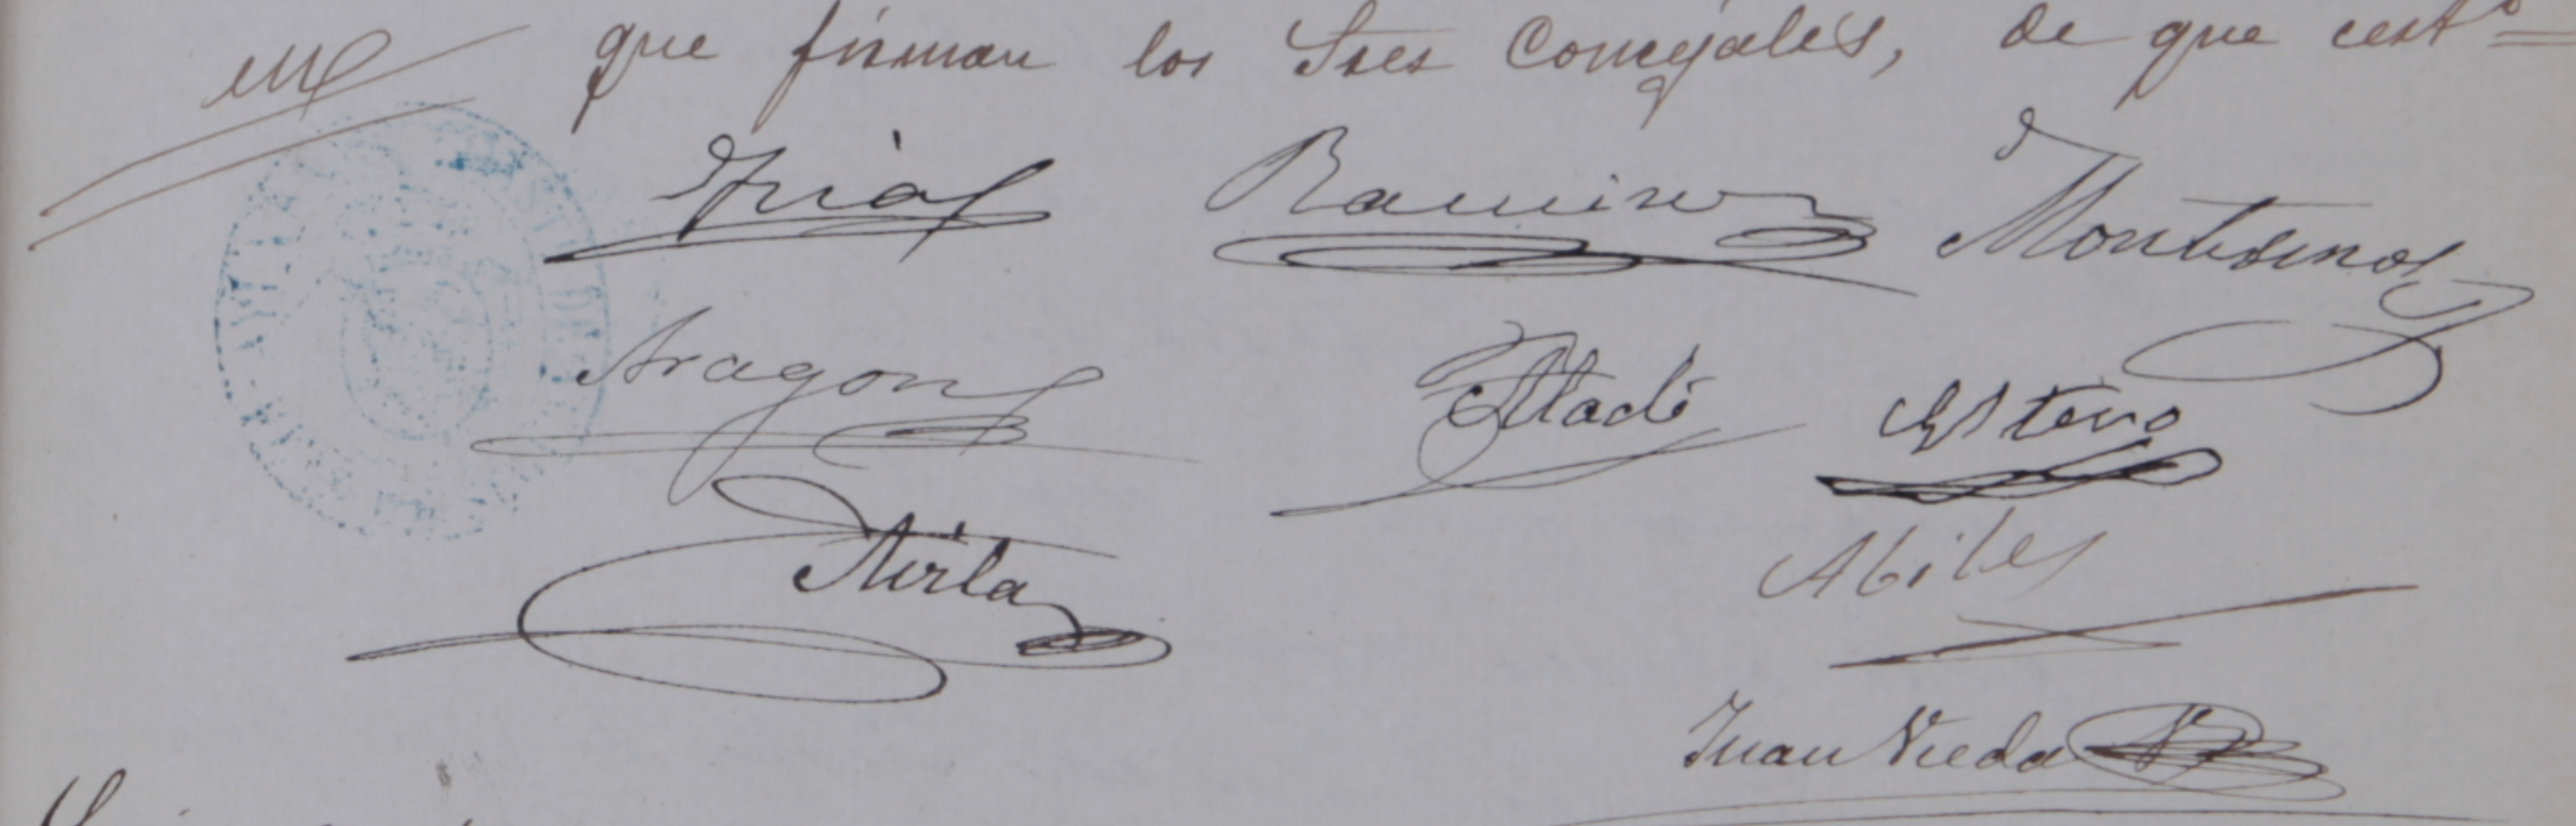 que firman los Sres Concejales, de que certº =
Frias Ramirez Montesinos
Aragon Estevo
Abiles
Juan Rueda